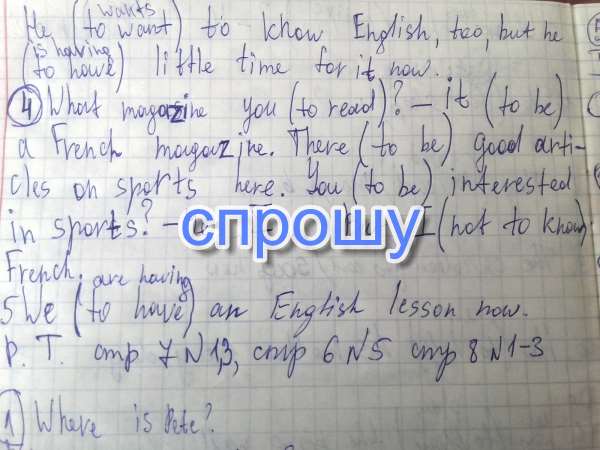 wants
He (to want) to know English, too, but he
is having
(to have) little time for it now.
4 What magazine you (to read)? – it (to be)
a French magazine. There (to be) good arti-
cles on sports here. You (to be) interested
in sports? – I (not to know)
спрошу
French.
are having
5 We (to have) an English lesson now.
P. T. стр 7 N 1,3, стр 6 N5 стр 8 N1-3
1 Where is Pete?